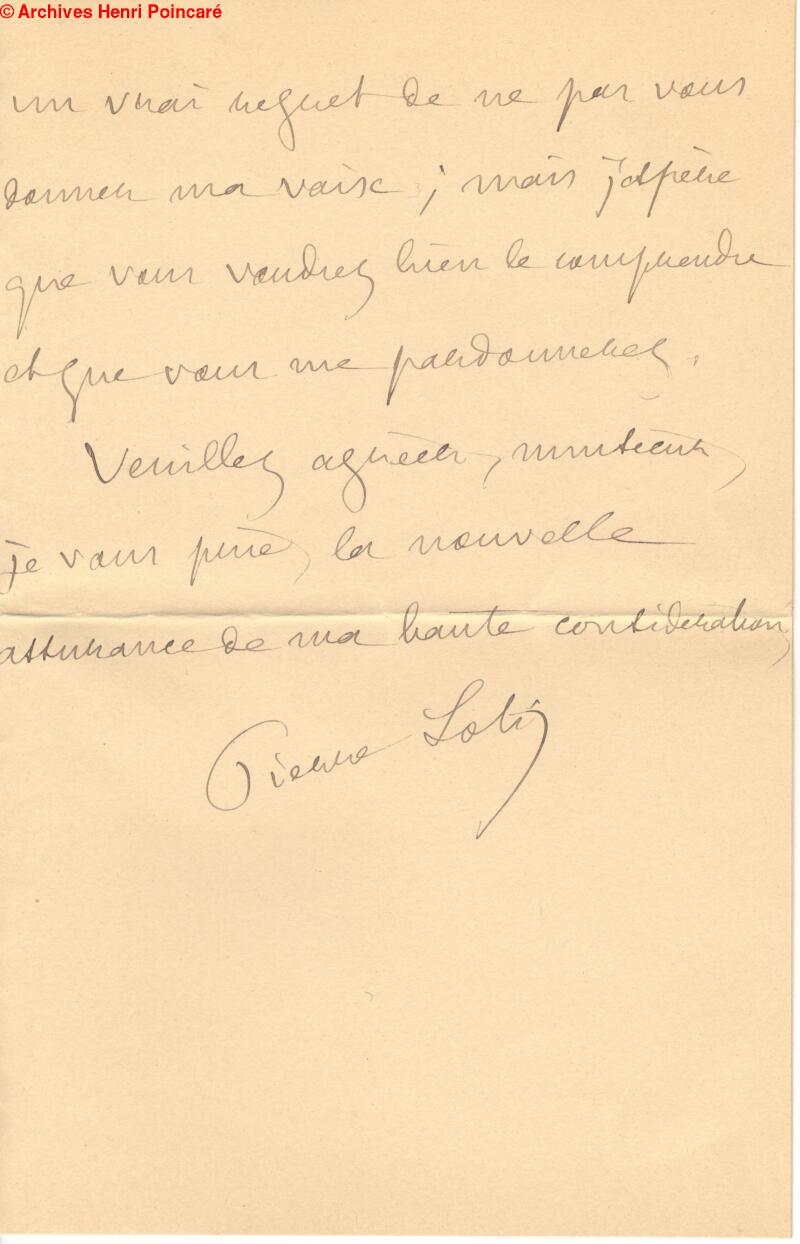 © Archives Henri Poincaré
un vrai regret de ne pas vous
donner ma voix ; mais j'espère
que vous voudrez bien le comprendre
et que vous me pardonnerez.
Veuillez agréer, monsieur,
je vous prie, la nouvelle
assurance de ma haute considération,
Pierre Loti